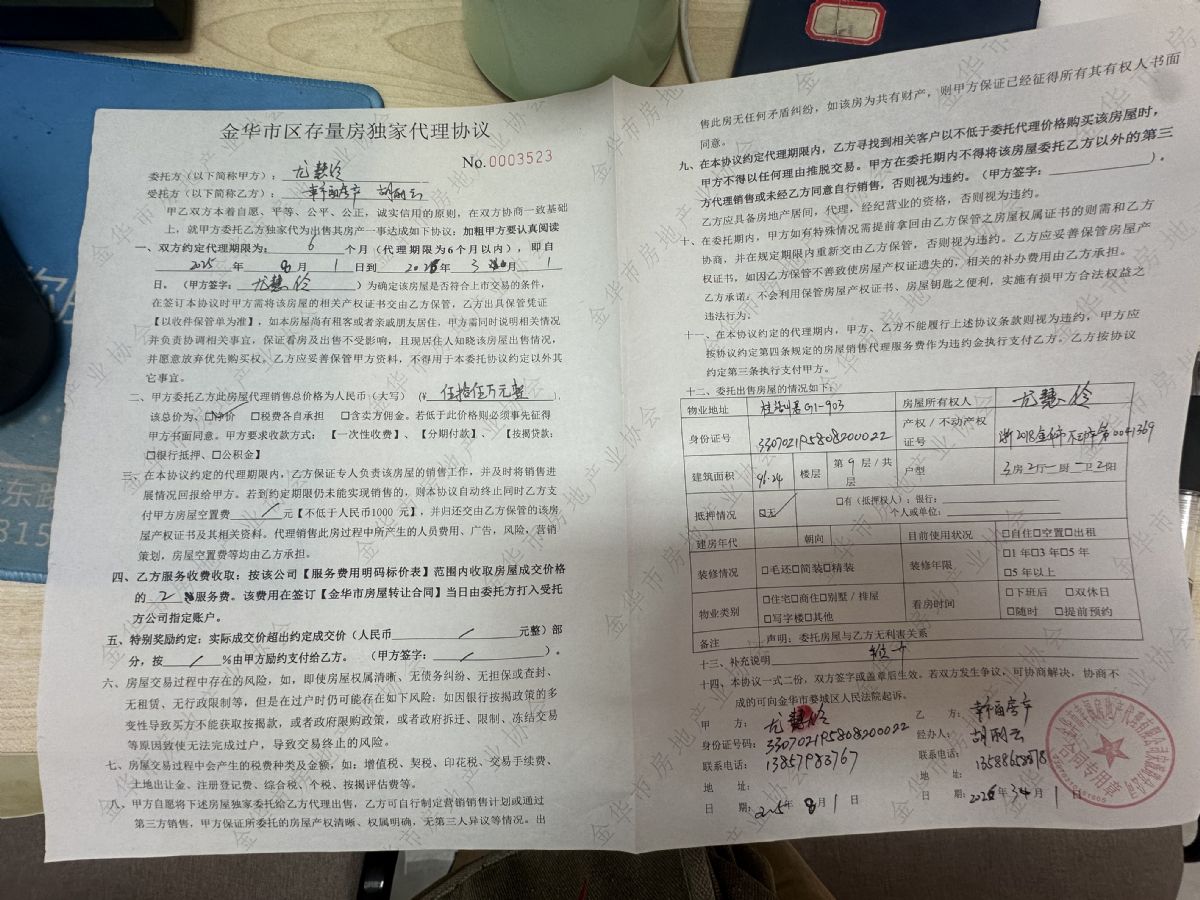 金华市区存量房独家代理协议
No.0003523
委托方（以下简称甲方）：尤慧伶
受托方（以下简称乙方）：幸福房产 胡丽云
甲乙双方本着自愿、平等、公平、公正，诚实信用的原则，在双方协商一致基础
上，就甲方委托乙方独家代为出售其房产一事达成如下协议：加粗甲方要认真阅读
一、双方约定代理期限为：6个月（代理期限为6个月以内），即自
2025年8月1日到 年3月1
日。（甲方签字：尤慧伶）为确定该房屋是否符合上市交易的条件，
在签订本协议时甲方需将该房屋的相关产权证书交由乙方保管，乙方出具保管凭证
【以收件保管单为准】，如本房屋尚有租客或者亲戚朋友居住，甲方需同时说明相关情况
并负责协调相关事宜，保证看房及出售不受影响，且现居住人知晓该房屋出售情况，
并愿意放弃优先购买权。乙方应妥善保管甲方资料，不得用于本委托协议约定以外其
它事宜。
二、甲方委托乙方此房屋代理销售总价格为人民币（大写）（¥伍拾伍万元整）.
该总价为、□净价 □税费各自承担 □含卖方佣金。若低于此价格则必须事先征得
甲方书面同意。甲方要求收款方式：【一次性收费】、【分期付款】、【按揭贷款：
□银行抵押、□公积金】
三、在本协议约定的代理期限内，乙方保证专人负责该房屋的销售工作，并及时将销售进
展情况回报给甲方。若到约定期限仍未能实现销售的，则本协议自动终止同时乙方支
付甲方房屋空置费/元【不低于人民币1000 元】，并归还交由乙方保管的该房
屋产权证书及其相关资料。代理销售此房过程中所产生的人员费用、广告，风险，营销
策划，房屋空置费等均由乙方承担。
四、乙方服务收费收取：按该公司【服务费用明码标价表】范围内收取房屋成交价格
的2%服务费。该费用在签订【金华市房屋转让合同】当日由委托方打入受托
方公司指定账户。
五、特别奖励约定：实际成交价超出约定成交价（人民币/元整）部
分，按/%由甲方励约支付给乙方。（甲方签字：/）。
六、房屋交易过程中存在的风险，如，即使房屋权属清晰、无债务纠纷、无担保或查封、
无租赁、无行政限制等，但是在过户时仍可能存在如下风险：如因银行按揭政策的多
变性导致买方不能获取按揭款，或者政府限购政策，或者政府拆迁、限制、冻结交易
等原因致使无法完成过户，导致交易终止的风险。
七、房屋交易过程中会产生的税费种类及金额，如：增值税、契税、印花税、交易手续费、
土地出让金、注册登记费、综合税、个税、按揭评估费等。
八、甲方自愿将下述房屋独家委托给乙方代理出售，乙方可自行制定营销销售计划或通过
第三方销售，甲方保证所委托的房屋产权清晰、权属明确，无第三人异议等情况。出
售此房无任何矛盾纠纷，如该房为共有财产，则甲方保证已经征得所有其有权人书面
同意。
九、在本协议约定代理期限内，乙方寻找到相关客户以不低于委托代理价格购买该房屋时，
甲方不得以任何理由推脱交易。甲方在委托期内不得将该房屋委托乙方以外的第三
方代理销售或未经乙方同意自行销售，否则视为违约。（甲方签字：）.
乙方应具备房地产居间，代理，经纪营业的资格，否则视为违约。
十、在委托期内，甲方如有特殊情况需提前拿回由乙方保管之房屋权属证书的则需和乙方
协商，并在规定期限内重新交由乙方保管，否则视为违约。乙方应妥善保管房屋产
权证书，如因乙方保管不善致使房屋产权证遗失的，相关的补办费用由乙方承担。
乙方承诺：不会利用保管房屋产权证书、房屋钥匙之便利，实施有损甲方合法权益之
违法行为。
十一、在本协议约定的代理期内，甲方、乙方不能履行上述协议条款则视为违约，甲方应
按协议约定第四条规定的房屋销售代理服务费作为违约金执行支付乙方。乙方按协议
约定第三条执行支付甲方。
十二、委托出售房屋的情况如下：
物业地址 G1-903 房屋所有权人 尤慧伶
身份证号 330702195808200022 产权/不动产权证号 浙2018金华市不动产第0041369
建筑面积 96.24 楼层 第9层/共层 户型 3房2厅一厨一卫2阳
抵押情况 □无 □有（抵押权人）：银行：
个人或单位：
建房年代 朝向 目前使用状况 □自住□空置□出租
装修情况 □毛还□简装□精装 装修年限 □1年□3年□5年
□5年以上
物业类别 □住宅□商住□别墅/排屋 看房时间 □下班后 □双休日
□写字楼□其他 □随时 □提前预约
备注 声明：委托房屋与乙方无利害关系
十三、补充说明
十四、本协议一式二份，双方签字或盖章后生效，若双方发生争议，可协商解决，协商不
成的可向金华市婺城区人民法院起诉。
甲 方：尤慧伶
身份证号码：330702195808200022
联系电话：13857983767
地 址：
日 期：2025年8月1日
乙 方：幸福房产
经办人：胡丽云
联系电话：13588658878
地 址：
日 期：年3月1日
合同专用章
金华市房地产业协会